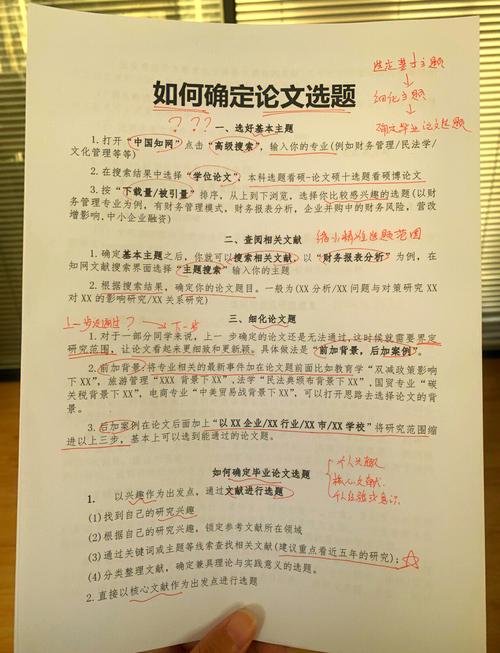 选定基本主题
↓
细化主题
↓
确定毕业论文选题
如何确定论文选题
? ? ?
一、选好基本主题
1.打开“中国知网”点击“高级搜索”,输入你的专业(例如财务管理/民法学/
文化管理等等)
2.在搜索结果中选择“学位论文”,本科选题看硕-论文硕十选题看硕博论文
3.按“下载量/被引量”排序,从上到下浏览,选择你比较感兴趣的选题(以财
务管理专业为例,有财务管理模式,财务报表分析,企业并购中的财务风险,营改
增影响,中小企业融资)
二、查阅相关文献
缩小精准选题范围
1.确定基本主题之后,你就可以搜索相关文献,以“财务报表分析”为例,在
知网文献搜索界面选择“主题搜索”输入你的主题
2.根据搜索结果,确定你的论文题目。一般为(XX分析/XX问题与对策研究XX
对XX的影响研究/XX关系研究)
上一步没通过?→下一步
三、细化论文题
1.对于一部分同学来说,上一步确定的论文还是无法通过,这时候就需要界定
研究范围,让论文看起来更细致和更新颖。具体做法是“前加背景,后加案例”。
2.前加背景:将专业相关的最新事件加在论文题前面比如教育学“双减政策影响
下XX”,旅游管理“XXX背景下XX”,法学“民法典颁布背景下XX”,国贸专业“碳
关税背景下XX”,电商专业“中美贸易战背景下XX”,可以打开思路去选择论文的背
景。
3.后加案例在论文后面加上“以XX企业/XX行业/XX市/XX学校”将研究范围缩
进以上三步,基本上可以选到能通过的论文题。
如何确定毕业论文选题
个人兴趣
核心文献
个人经验或意识
1. 以兴趣作为出发点,通过文献进行选题
(1)找到自己的研究兴趣
(2)根据自己的研究兴趣,锁定参考文献所在领域
(3)通过关键词或主题等线索查找相关文献(建议重点看近五年的研究);
(4)分类整理文献,确定兼具理论与实践意义的选题。
2.直接以核心文献作为出发点进行选题